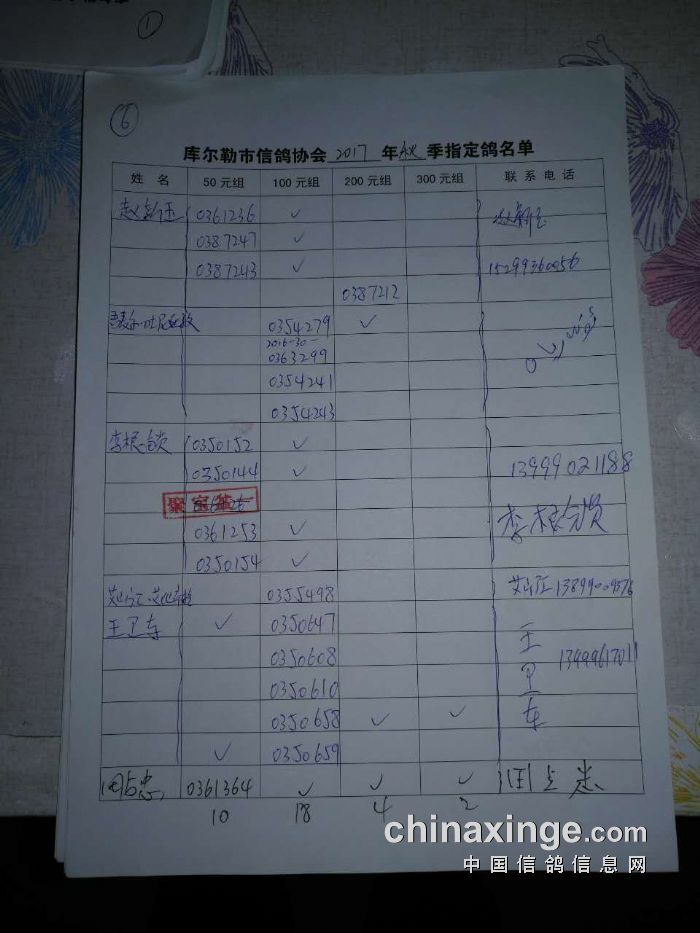 ①
⑥
库尔勒市信鸽协会 2017 年 秋 季指定鸽名单
姓 名 50元组 100元组 200元组 300元组 联系电话
0361236 ✓
0387247 ✓
0387243 ✓ 15299360056
0387212
0354279 ✓
2016-30-
0363299
0354241
0354243
0350152 ✓
0350144 ✓ 13999021188
0361253 ✓
0350154 ✓
0355498
王卫东 ✓ 0350647 王卫东
0350608 13499617011
0350610
0350658 ✓ ✓
✓ 0350659
0361364 ✓ ✓ ✓
10 18 4 2
chinaxinge.com
中国信鸽信息网